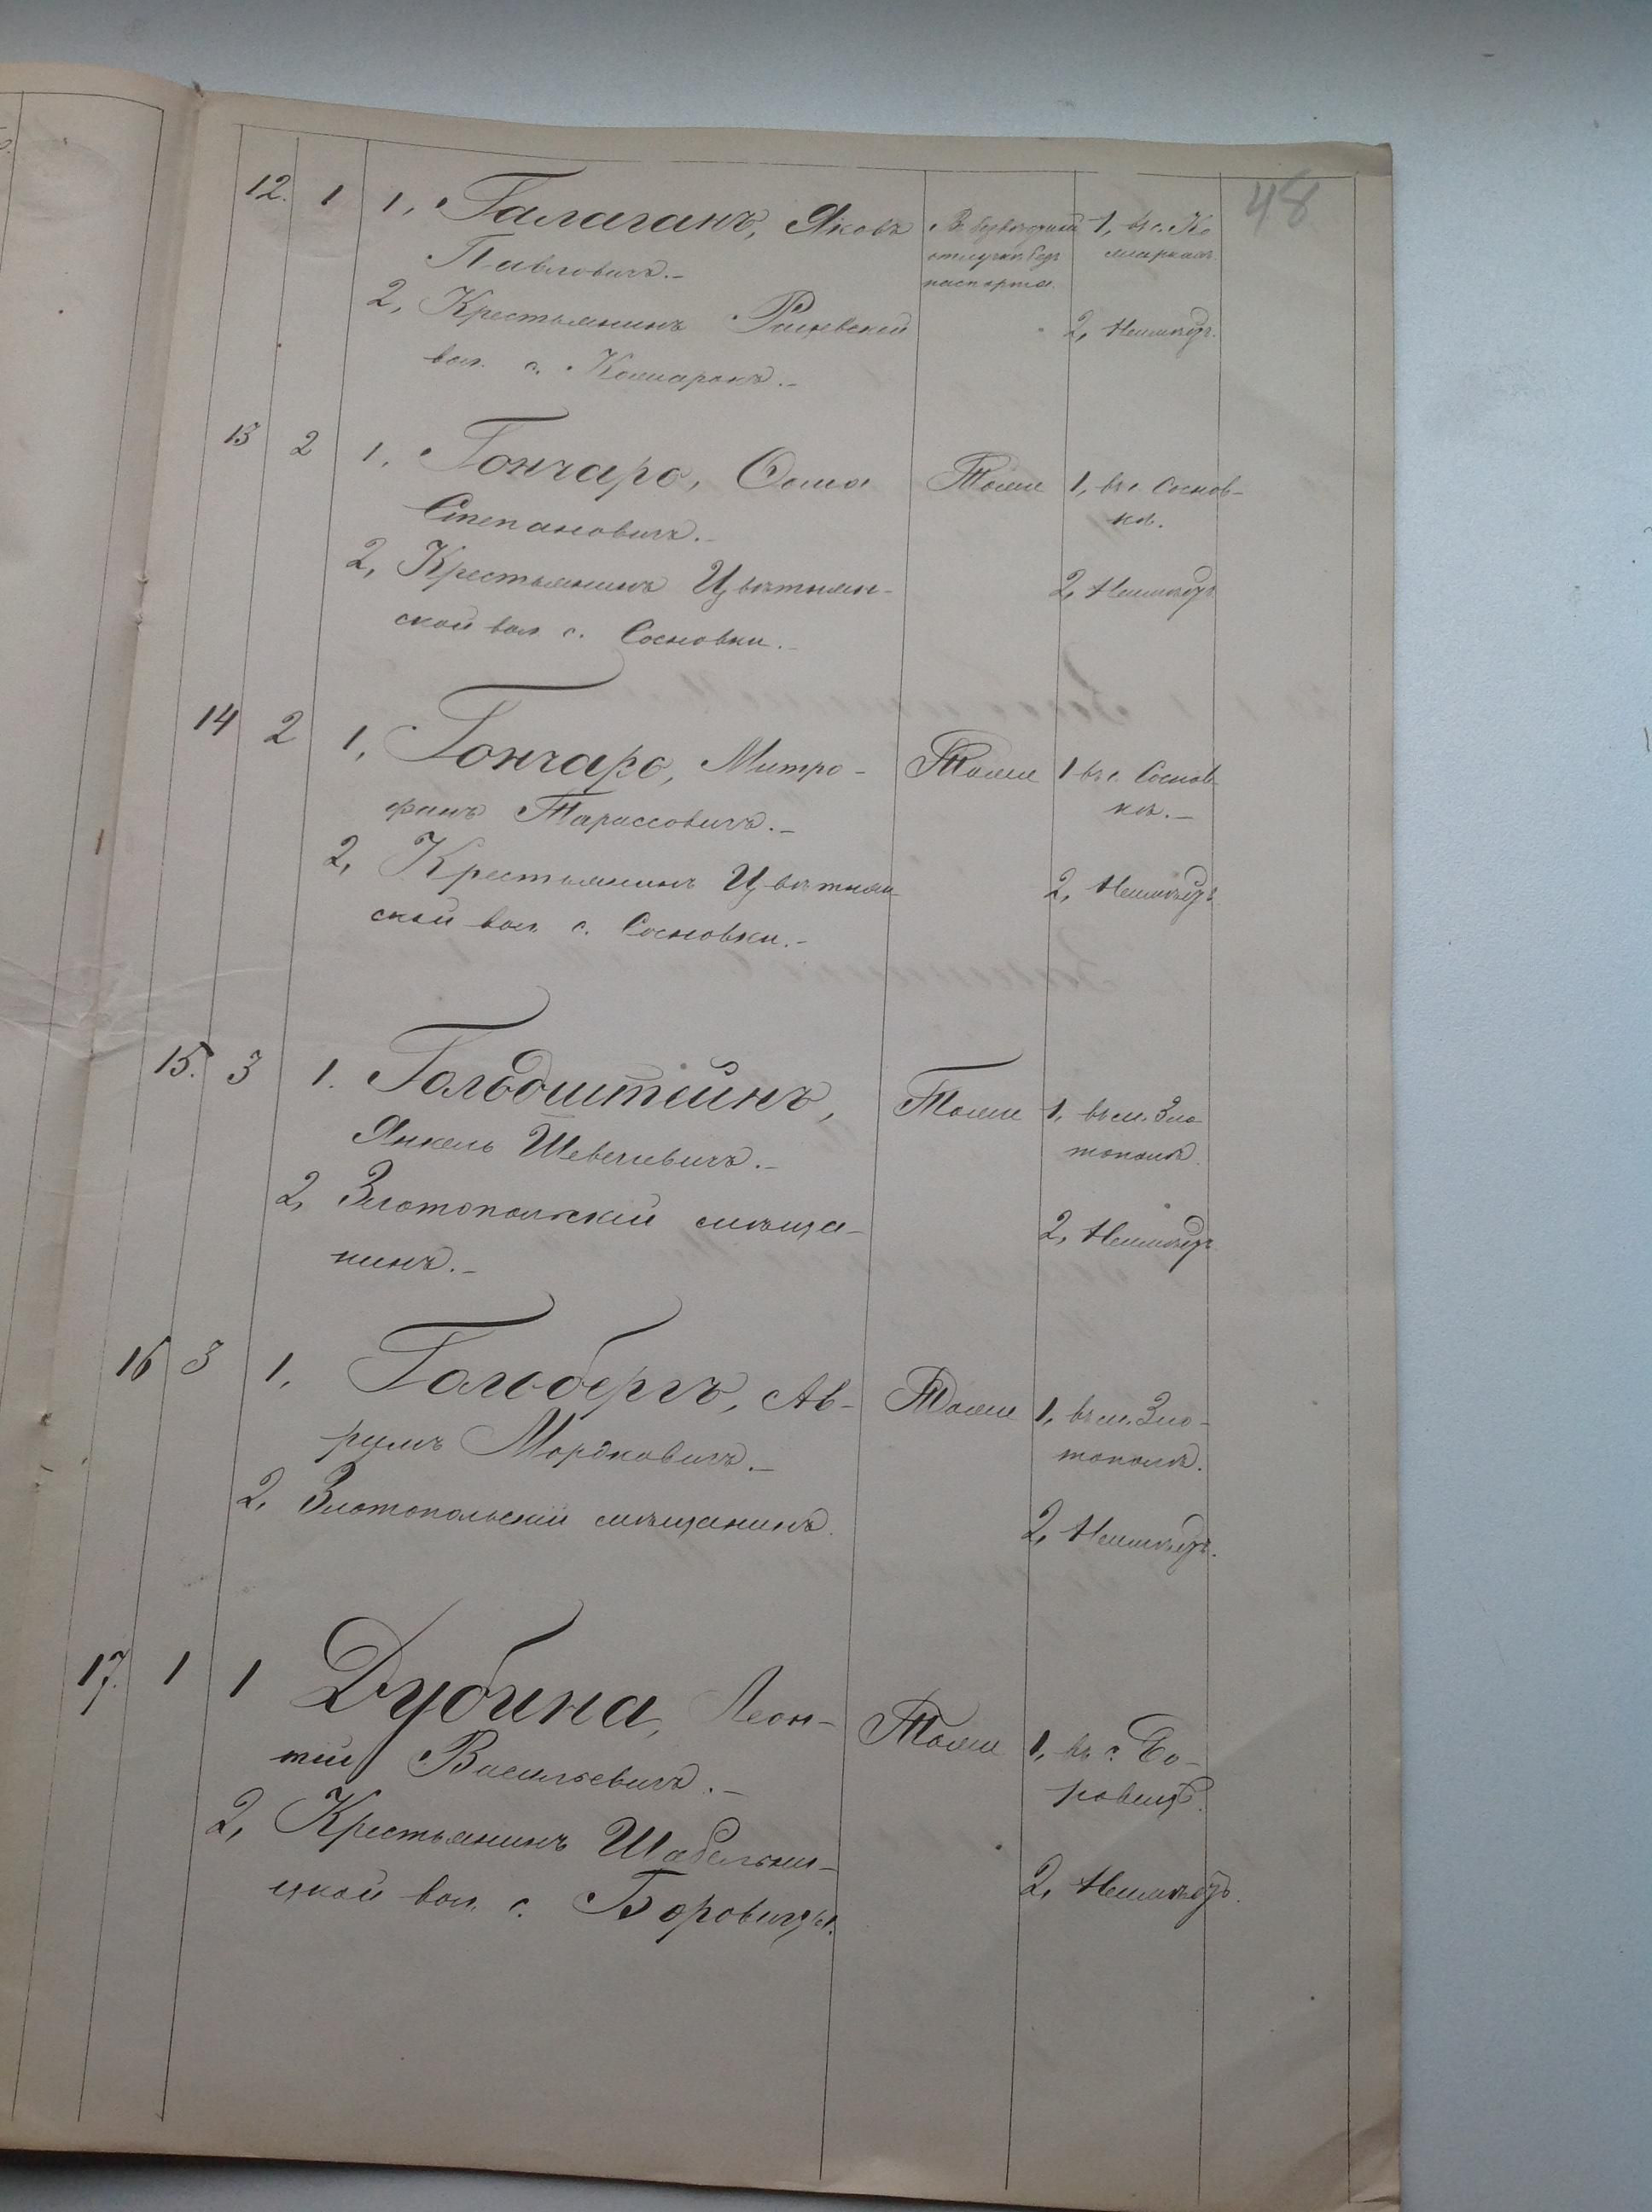 48
12. 1 1, Галаганъ, Яковъ
Павловичъ.-
2, Крестьянинъ Рацевской
вол. с. Комарокъ.-
отлучкѣ безъ
паспорта.
1, въ с. Ко
маркахъ.
2, Неимѣетъ.
13 2 1, Гончаро, Ѳома
Степановичъ.-
2, Крестьянинъ Цвѣтнян-
ской вол. с. Сосновки.-
Тоже
1, въ с. Соснов-
кѣ.
2, Неимѣетъ
14 2 1, Гончаро, Митро-
фанъ Тарассовичъ.-
2, Крестьянинъ Цвѣтнян
ской вол. с. Сосновки.-
Тоже
1 въ с. Соснов
кѣ.-
2, Неимѣетъ
15. 3 1. Гольдштейнъ,
Янкель Шевелевичъ.-
2, Златопольскій мѣща-
нинъ.-
Тоже
1, въ м. Зла
тополѣ.
2, Неимѣетъ
16 3 1, Гольбергъ, Ав-
румъ Мордковичъ.-
2, Златопольскій мѣщанинъ.
Тоже
1, въ м. Зла-
тополѣ.
2, Неимѣетъ.
17. 1 1 Дубина, Леон-
тій Васильевичъ.-
2, Крестьянинъ Шабельни-
цкой вол. с. Боровицы.
Тоже
1, въ с. Бо-
ровицѣ.
2, Неимѣетъ.